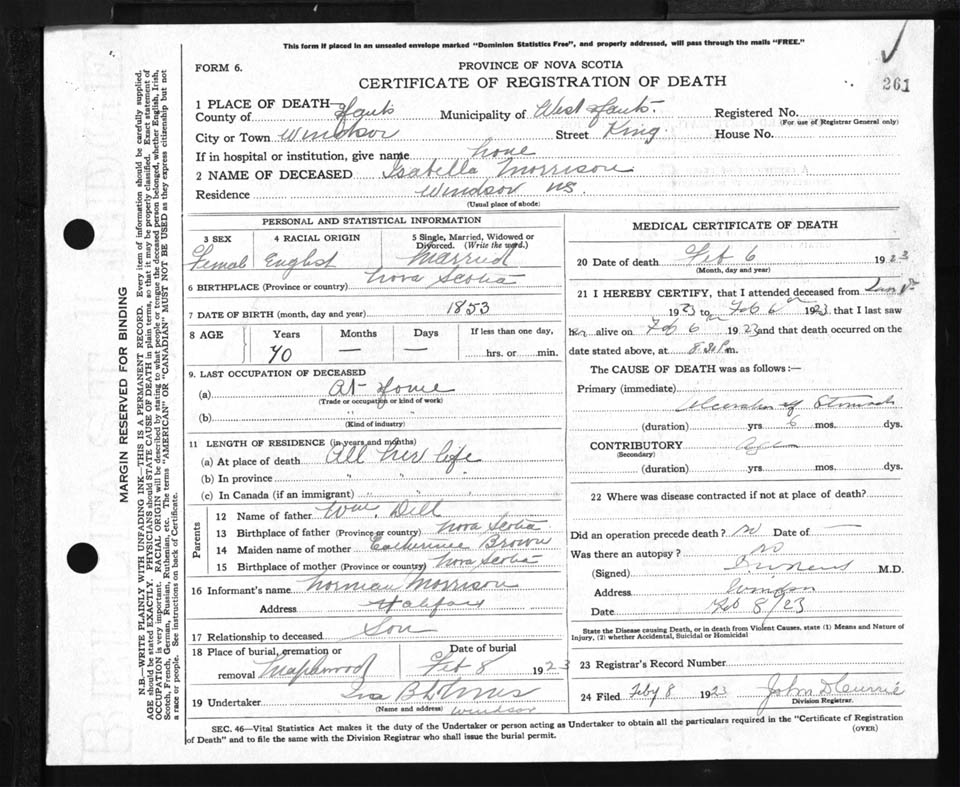 This form if placed in an unsealed envelope marked "Dominion Statistics Free", and properly addressed, will pass through the mails "FREE."
FORM 6.
PROVINCE OF NOVA SCOTIA
CERTIFICATE OF REGISTRATION OF DEATH
261
1 PLACE OF DEATH—
County of Hants Municipality of West Hants. Registered No.
(For use of Registrar General only)
City or Town Windsor Street King. House No.
If in hospital or institution, give name home
2 NAME OF DECEASED Isabella Morrison
Residence Windsor NS
(Usual place of abode)
PERSONAL AND STATISTICAL INFORMATION
3 SEX 4 RACIAL ORIGIN 5 Single, Married, Widowed or Divorced. (Write the word.)
Female English Married
6 BIRTHPLACE (Province or country) Nova Scotia
7 DATE OF BIRTH (month, day and year) 1853
8 AGE Years Months Days If less than one day,
70 — — hrs. or min.
9. LAST OCCUPATION OF DECEASED
(a) At Home
(Trade or occupation or kind of work)
(b) " "
(Kind of industry)
11 LENGTH OF RESIDENCE (in years and months)
(a) At place of death All her life
(b) In province " "
(c) In Canada (if an immigrant) " "
Parents
12 Name of father Wm. Dill
13 Birthplace of father (Province or country) Nova Scotia
14 Maiden name of mother Catherine Brown
15 Birthplace of mother (Province or country) Nova Scotia
16 Informant's name Norman Morrison
Address Halifax
17 Relationship to deceased Son
18 Place of burial, cremation or removal Maplewood Date of burial Feb 8 1923
19 Undertaker
(Name and address) Windsor
MEDICAL CERTIFICATE OF DEATH
20 Date of death Feb 6 1923
(Month, day and year)
21 I HEREBY CERTIFY, that I attended deceased from
1923 to Feb 6 1923. that I last saw
her alive on Feb 6 1923 and that death occurred on
date stated above, at m.
The CAUSE OF DEATH was as follows:—
Primary (immediate)
Ulceration of Stomach
(duration) yrs. 6 mos. dys.
CONTRIBUTORY
(Secondary)
(duration) yrs. mos. dys.
22 Where was disease contracted if not at place of death?
Did an operation precede death? no Date of —
Was there an autopsy? no
(Signed) M.D.
Address Windsor
Date Feb 8/23
State the Disease causing Death, or in death from Violent Causes, state (1) Means and Nature of Injury, (2) whether Accidental, Suicidal or Homicidal
23 Registrar's Record Number
24 Filed Feby 8 1923 John D Currie
Division Registrar.
SEC. 46—Vital Statistics Act makes it the duty of the Undertaker or person acting as Undertaker to obtain all the particulars required in the "Certificate of Registration
of Death" and to file the same with the Division Registrar who shall issue the burial permit. (OVER)
MARGIN RESERVED FOR BINDING
N.B.—WRITE PLAINLY WITH UNFADING INK—THIS IS A PERMANENT RECORD. Every item of information should be carefully supplied.
AGE should be stated EXACTLY. PHYSICIANS should STATE CAUSE OF DEATH in plain terms, so that it may be properly classified. Exact statement of
OCCUPATION is very important. RACIAL ORIGIN will be described by stating to what people or tongue the deceased person belonged, whether English, Irish,
Scotch, French, German, Russian, Ruthenian, etc. The terms "AMERICAN" or "CANADIAN" MUST NOT BE USED as they express citizenship but not
a race or people. See instructions on back of Certificate.